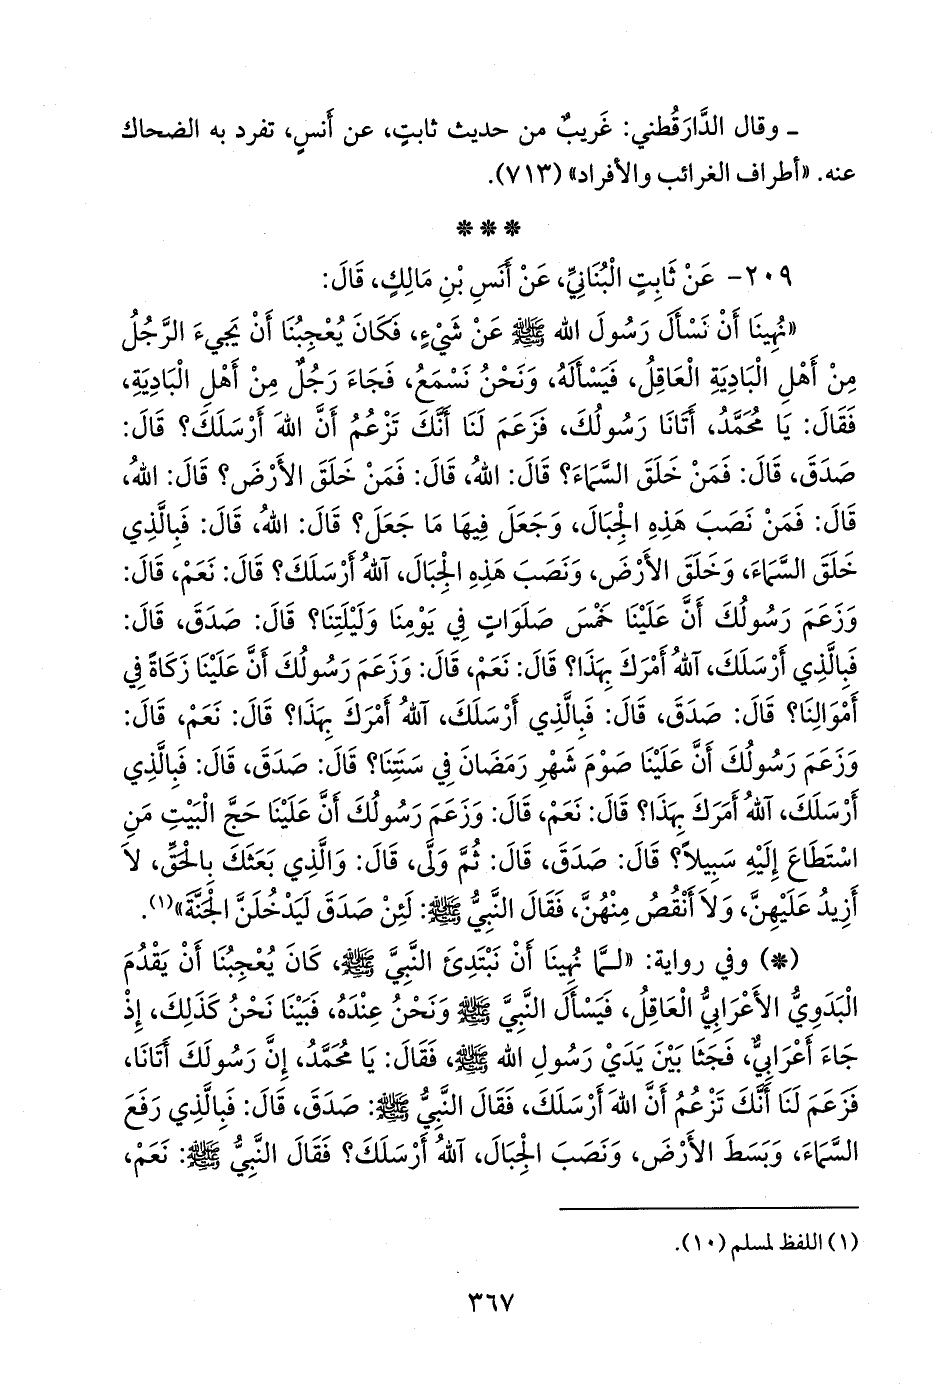 ـ وقال الدَّارَقُطني: غَريبٌ من حديث ثابتٍ، عن أَنسٍ، تفرد به الضحاك
عنه. «أطراف الغرائب والأفراد» (٧١٣).
* * *
٢٠٩- عَنْ ثَابِتٍ الْبُنَانِيِّ، عَنْ أَنَسِ بْنِ مَالِكٍ، قَالَ:
«نُهِينَا أَنْ نَسْأَلَ رَسُولَ الله ﷺ عَنْ شَيْءٍ، فَكَانَ يُعْجِبُنَا أَنْ يَجِيءَ الرَّجُلُ
مِنْ أَهْلِ الْبَادِيَةِ الْعَاقِلُ، فَيَسْأَلَهُ، وَنَحْنُ نَسْمَعُ، فَجَاءَ رَجُلٌ مِنْ أَهْلِ الْبَادِيَةِ،
فَقَالَ: يَا مُحَمَّدُ، أَتَانَا رَسُولُكَ، فَزَعَمَ لَنَا أَنَّكَ تَزْعُمُ أَنَّ اللهَ أَرْسَلَكَ؟ قَالَ:
صَدَقَ، قَالَ: فَمَنْ خَلَقَ السَّمَاءَ؟ قَالَ: اللهُ، قَالَ: فَمَنْ خَلَقَ الأَرْضَ؟ قَالَ: اللهُ،
قَالَ: فَمَنْ نَصَبَ هَذِهِ الْجِبَالَ، وَجَعَلَ فِيهَا مَا جَعَلَ؟ قَالَ: اللهُ، قَالَ: فَبِالَّذِي
خَلَقَ السَّمَاءَ، وَخَلَقَ الأَرْضَ، وَنَصَبَ هَذِهِ الْجِبَالَ، آللهُ أَرْسَلَكَ؟ قَالَ: نَعَمْ، قَالَ:
وَزَعَمَ رَسُولُكَ أَنَّ عَلَيْنَا خَمْسَ صَلَوَاتٍ فِي يَوْمِنَا وَلَيْلَتِنَا؟ قَالَ: صَدَقَ، قَالَ:
فَبِالَّذِي أَرْسَلَكَ، آللهُ أَمَرَكَ بِهَذَا؟ قَالَ: نَعَمْ، قَالَ: وَزَعَمَ رَسُولُكَ أَنَّ عَلَيْنَا زَكَاةً فِي
أَمْوَالِنَا؟ قَالَ: صَدَقَ، قَالَ: فَبِالَّذِي أَرْسَلَكَ، آللهُ أَمَرَكَ بِهَذَا؟ قَالَ: نَعَمْ، قَالَ:
وَزَعَمَ رَسُولُكَ أَنَّ عَلَيْنَا صَوْمَ شَهْرِ رَمَضَانَ فِي سَنَتِنَا؟ قَالَ: صَدَقَ، قَالَ: فَبِالَّذِي
أَرْسَلَكَ، آللهُ أَمَرَكَ بِهَذَا؟ قَالَ: نَعَمْ، قَالَ: وَزَعَمَ رَسُولُكَ أَنَّ عَلَيْنَا حَجَّ الْبَيْتِ مَنِ
اسْتَطَاعَ إِلَيْهِ سَبِيلاً؟ قَالَ: صَدَقَ، قَالَ: ثُمَّ وَلَّى، قَالَ: وَالَّذِي بَعَثَكَ بِالْحَقِّ، لاَ
أَزِيدُ عَلَيْهِنَّ، وَلاَ أَنْقُصُ مِنْهُنَّ، فَقَالَ النَّبِيُّ ﷺ: لَئِنْ صَدَقَ لَيَدْخُلَنَّ الْجَنَّةَ»(١).
(*) وفي رواية: «لـمَّا نُهِينَا أَنْ نَبْتَدِئَ النَّبِيَّ ﷺ، كَانَ يُعْجِبُنَا أَنْ يَقْدُمَ
الْبَدَوِيُّ الأَعْرَابِيُّ الْعَاقِلُ، فَيَسْأَلَ النَّبِيَّ ﷺ وَنَحْنُ عِنْدَهُ، فَبَيْنَا نَحْنُ كَذَلِكَ، إِذْ
جَاءَ أَعْرَابِيٌّ، فَجَثَا بَيْنَ يَدَيْ رَسُولِ الله ﷺ، فَقَالَ: يَا مُحَمَّدُ، إِنَّ رَسُولَكَ أَتَانَا،
فَزَعَمَ لَنَا أَنَّكَ تَزْعُمُ أَنَّ اللهَ أَرْسَلَكَ، فَقَالَ النَّبِيُّ ﷺ: صَدَقَ، قَالَ: فَبِالَّذِي رَفَعَ
السَّمَاءَ، وَبَسَطَ الأَرْضَ، وَنَصَبَ الْجِبَالَ، آللهُ أَرْسَلَكَ؟ فَقَالَ النَّبِيُّ ﷺ: نَعَمْ،
(١) اللفظ لمسلم (١٠).
٣٦٧